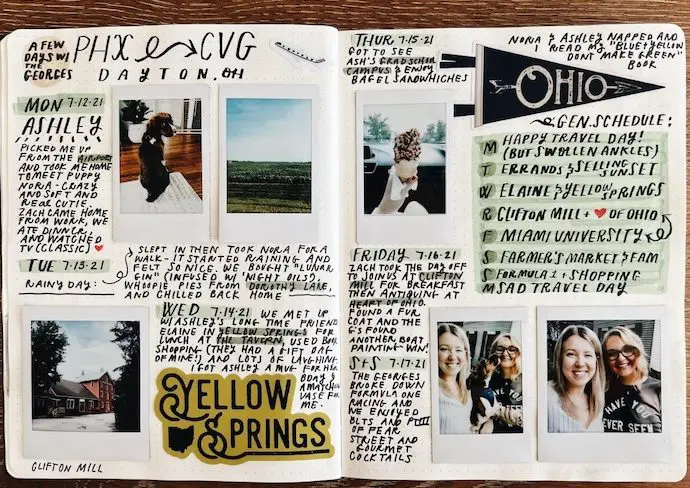 A FEW
DAYS W/
THE
GEORGES
PHX CVG
DAYTON, OH
MON 7-12-21
ASHLEY
PICKED ME UP
FROM THE AIRPORT
AND TOOK ME HOME
TO MEET PUPPY
NORA - CRAZY
AND SOFT AND
REAL CUTIE.
ZACH CAME HOME
FROM WORK, WE
ATE DINNER,
AND WATCHED
TV (CLASSIC) ♥
TUE 7-13-21
RAINY DAY:
SLEPT IN THEN TOOK NORA FOR A
WALK - IT STARTED RAINING AND
FELT SO NICE. WE BOUGHT "LUNAR
GIN" (INFUSED W/ NIGHT OILS),
WHOOPIE PIES FROM DOROTHY LANE,
AND CHILLED BACK HOME
WED 7-14-21 WE MET UP
W/ ASHLEY'S LONG TIME FRIEND
ELAINE IN YELLOW SPRINGS FOR
LUNCH AT THE TAVERN, USED BOOK
SHOPPING (THEY HAD A GIFT BAG
OF MINE!) AND LOTS OF LAUGHING.
I GOT ASHLEY A MUG FOR HER
BDAY &
A MATCHING
VASE FOR
ME.
YELLOW
SPRINGS
CLIFTON MILL
THUR 7-15-21
GOT TO SEE
ASH'S GRAD SCHOOL
CAMPUS & ENJOY
BAGEL SANDWHICHES
NORA & ASHLEY NAPPED AND
I READ MY "BLUE + YELLOW
DON'T MAKE GREEN"
BOOK
OHIO
GEN. SCHEDULE:
M HAPPY TRAVEL DAY!
(BUT SWOLLEN ANKLES)
T ERRANDS & SELLING
SUNSET
W ELAINE & YELLOW SPRINGS
R CLIFTON MILL + ♥ OF OHIO
F MIAMI UNIVERSITY
S FARMER'S MARKET & FAM
S FORMULA 1 + SHOPPING
M SAD TRAVEL DAY
FRIDAY 7-16-21
ZACH TOOK THE DAY OFF
TO JOIN US AT CLIFTON
MILL FOR BREAKFAST
THEN ANTIQUING AT
HEART OF OHIO.
FOUND A FUR
COAT AND THE
G'S FOUND
ANOTHER BOAT
PAINTING - WIN!
S+S 7-17-21
THE GEORGES
BROKE DOWN
FORMULA ONE
RACING AND
WE ENJOYED
BLTS AND PT III
OF FEAR
STREET AND
GOURMET
COCKTAILS
HAVE YOU
EVER SEEN